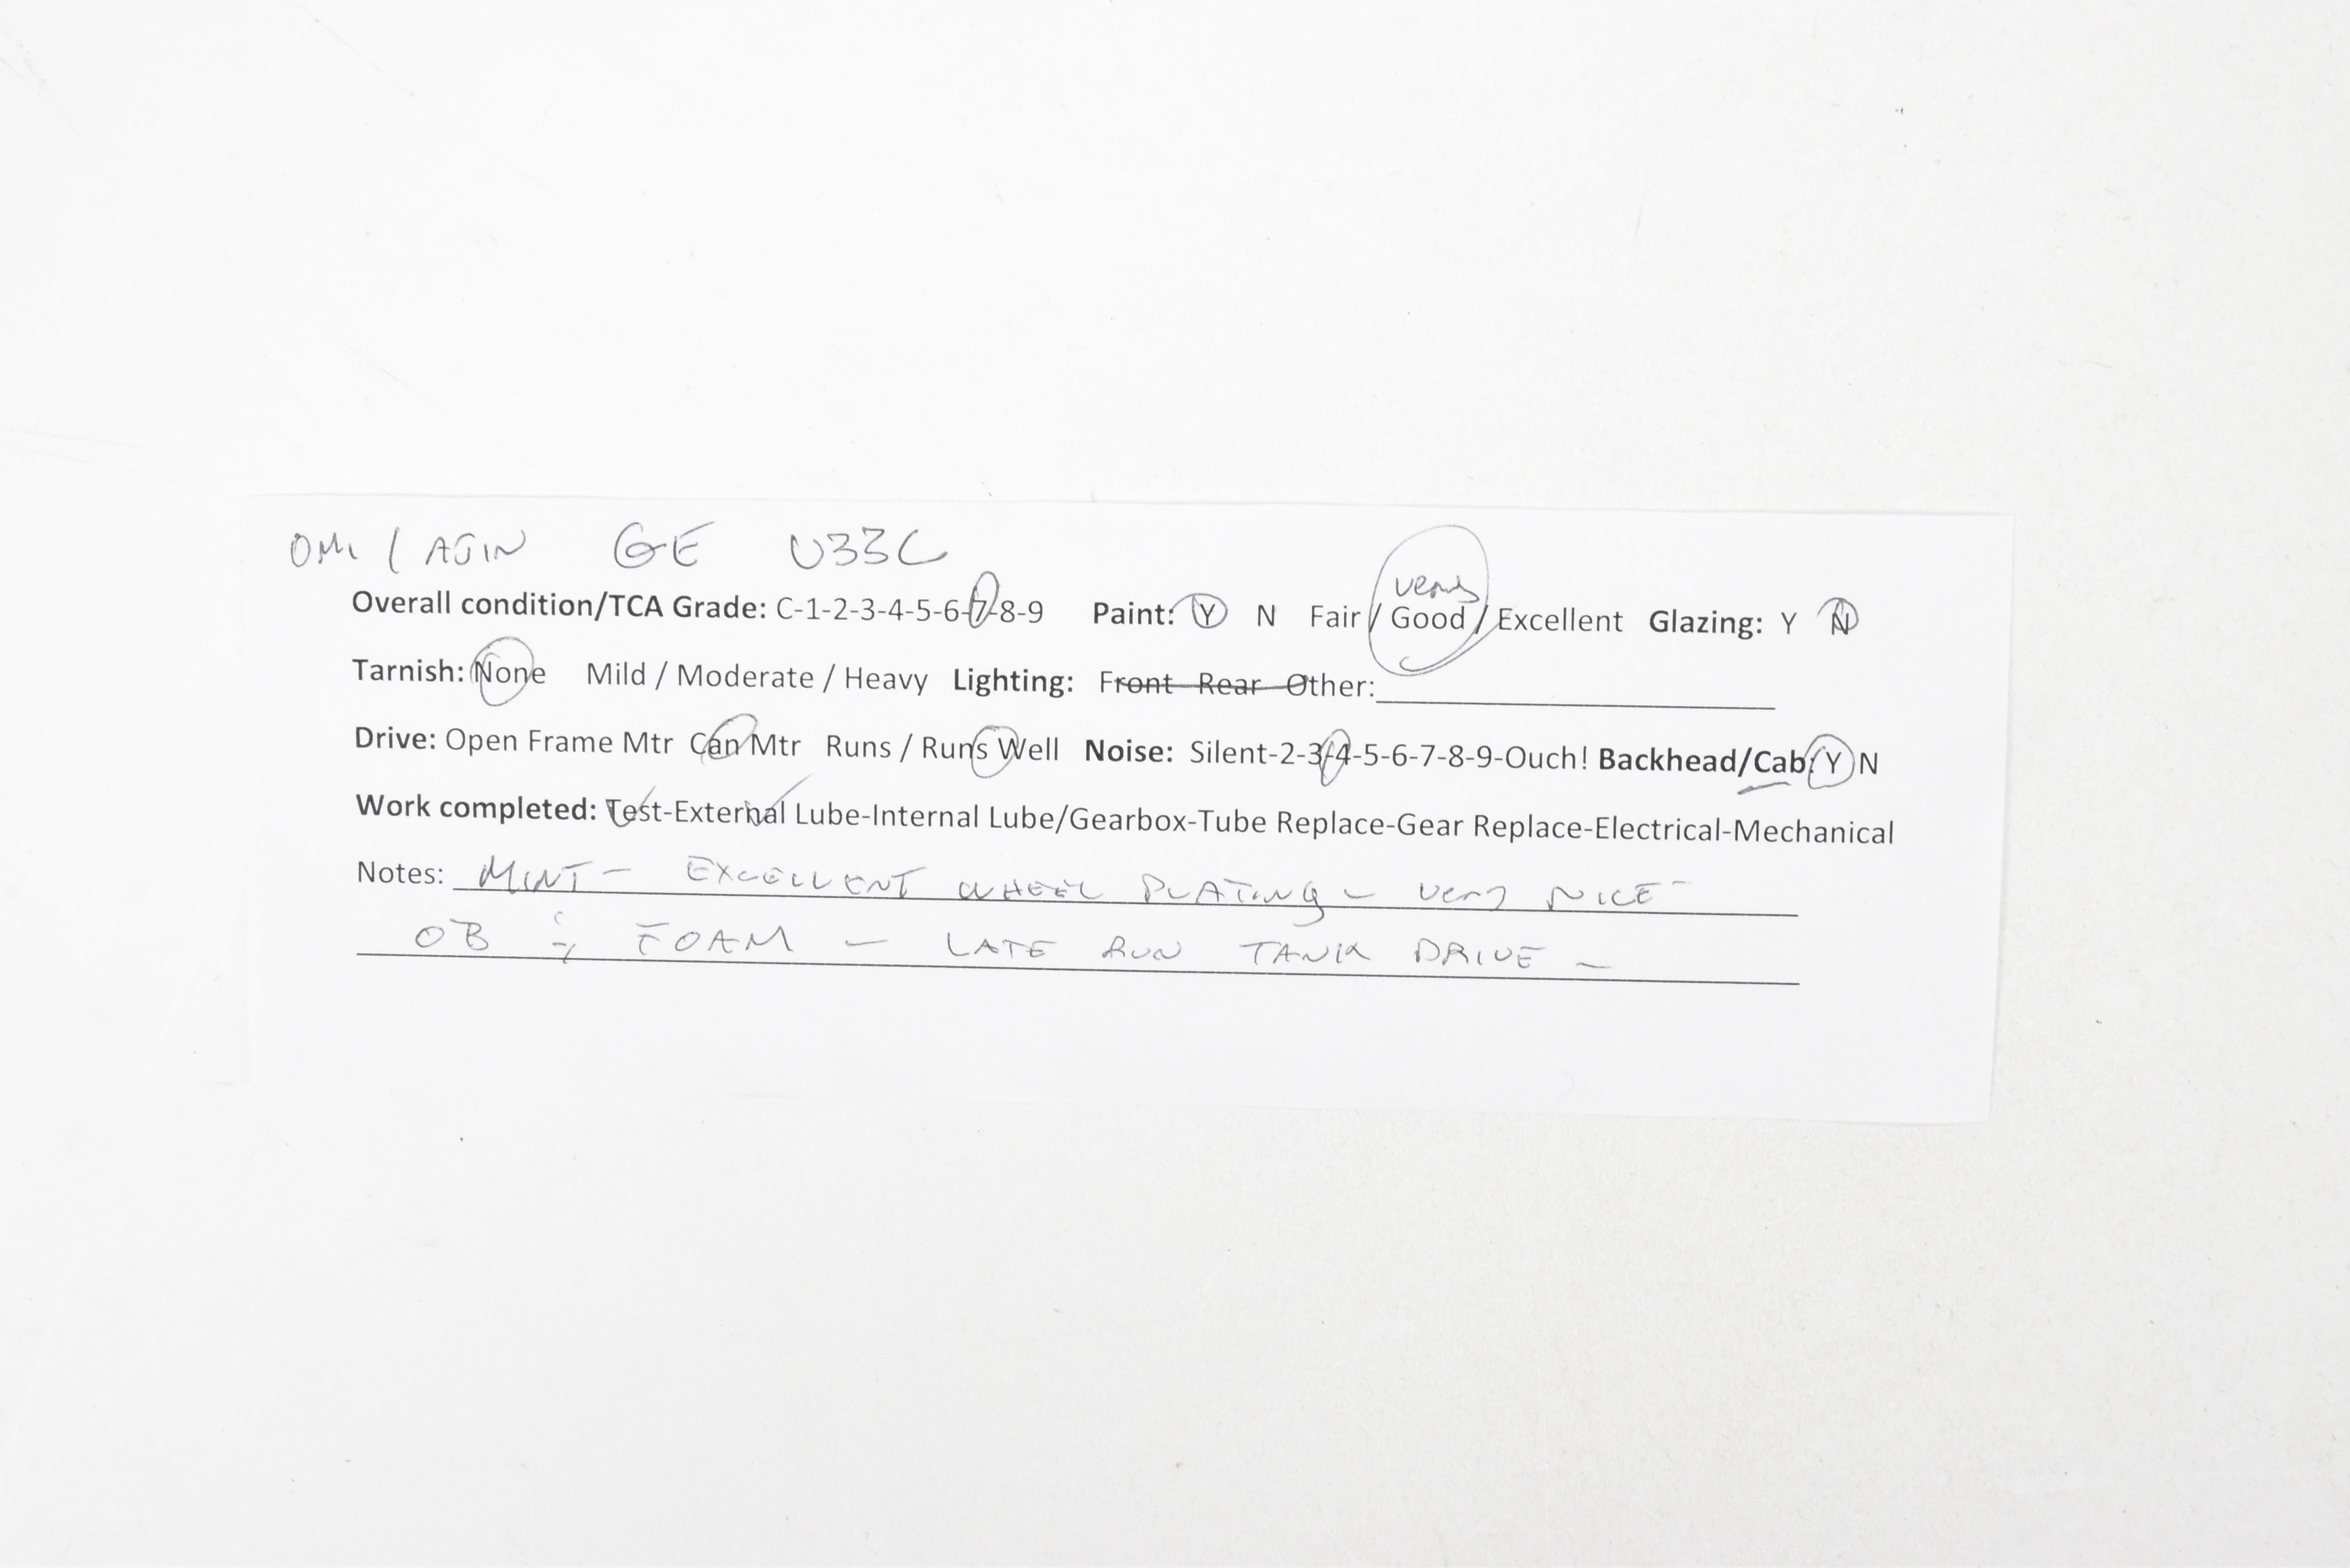 OMI / AJIN GE U33C
very
Overall condition/TCA Grade: C-1-2-3-4-5-6-7-8-9 Paint: Y N Fair / Good / Excellent Glazing: Y N
Tarnish: None Mild / Moderate / Heavy Lighting: Front Rear Other:
Drive: Open Frame Mtr Can Mtr Runs / Runs Well Noise: Silent-2-3-4-5-6-7-8-9-Ouch! Backhead/Cab: Y N
Work completed: Test-External Lube-Internal Lube/Gearbox-Tube Replace-Gear Replace-Electrical-Mechanical
Notes: MINT - EXCELLENT WHEEL PLATING - very NICE -
OB & FOAM - LATE RUN TANK DRIVE -